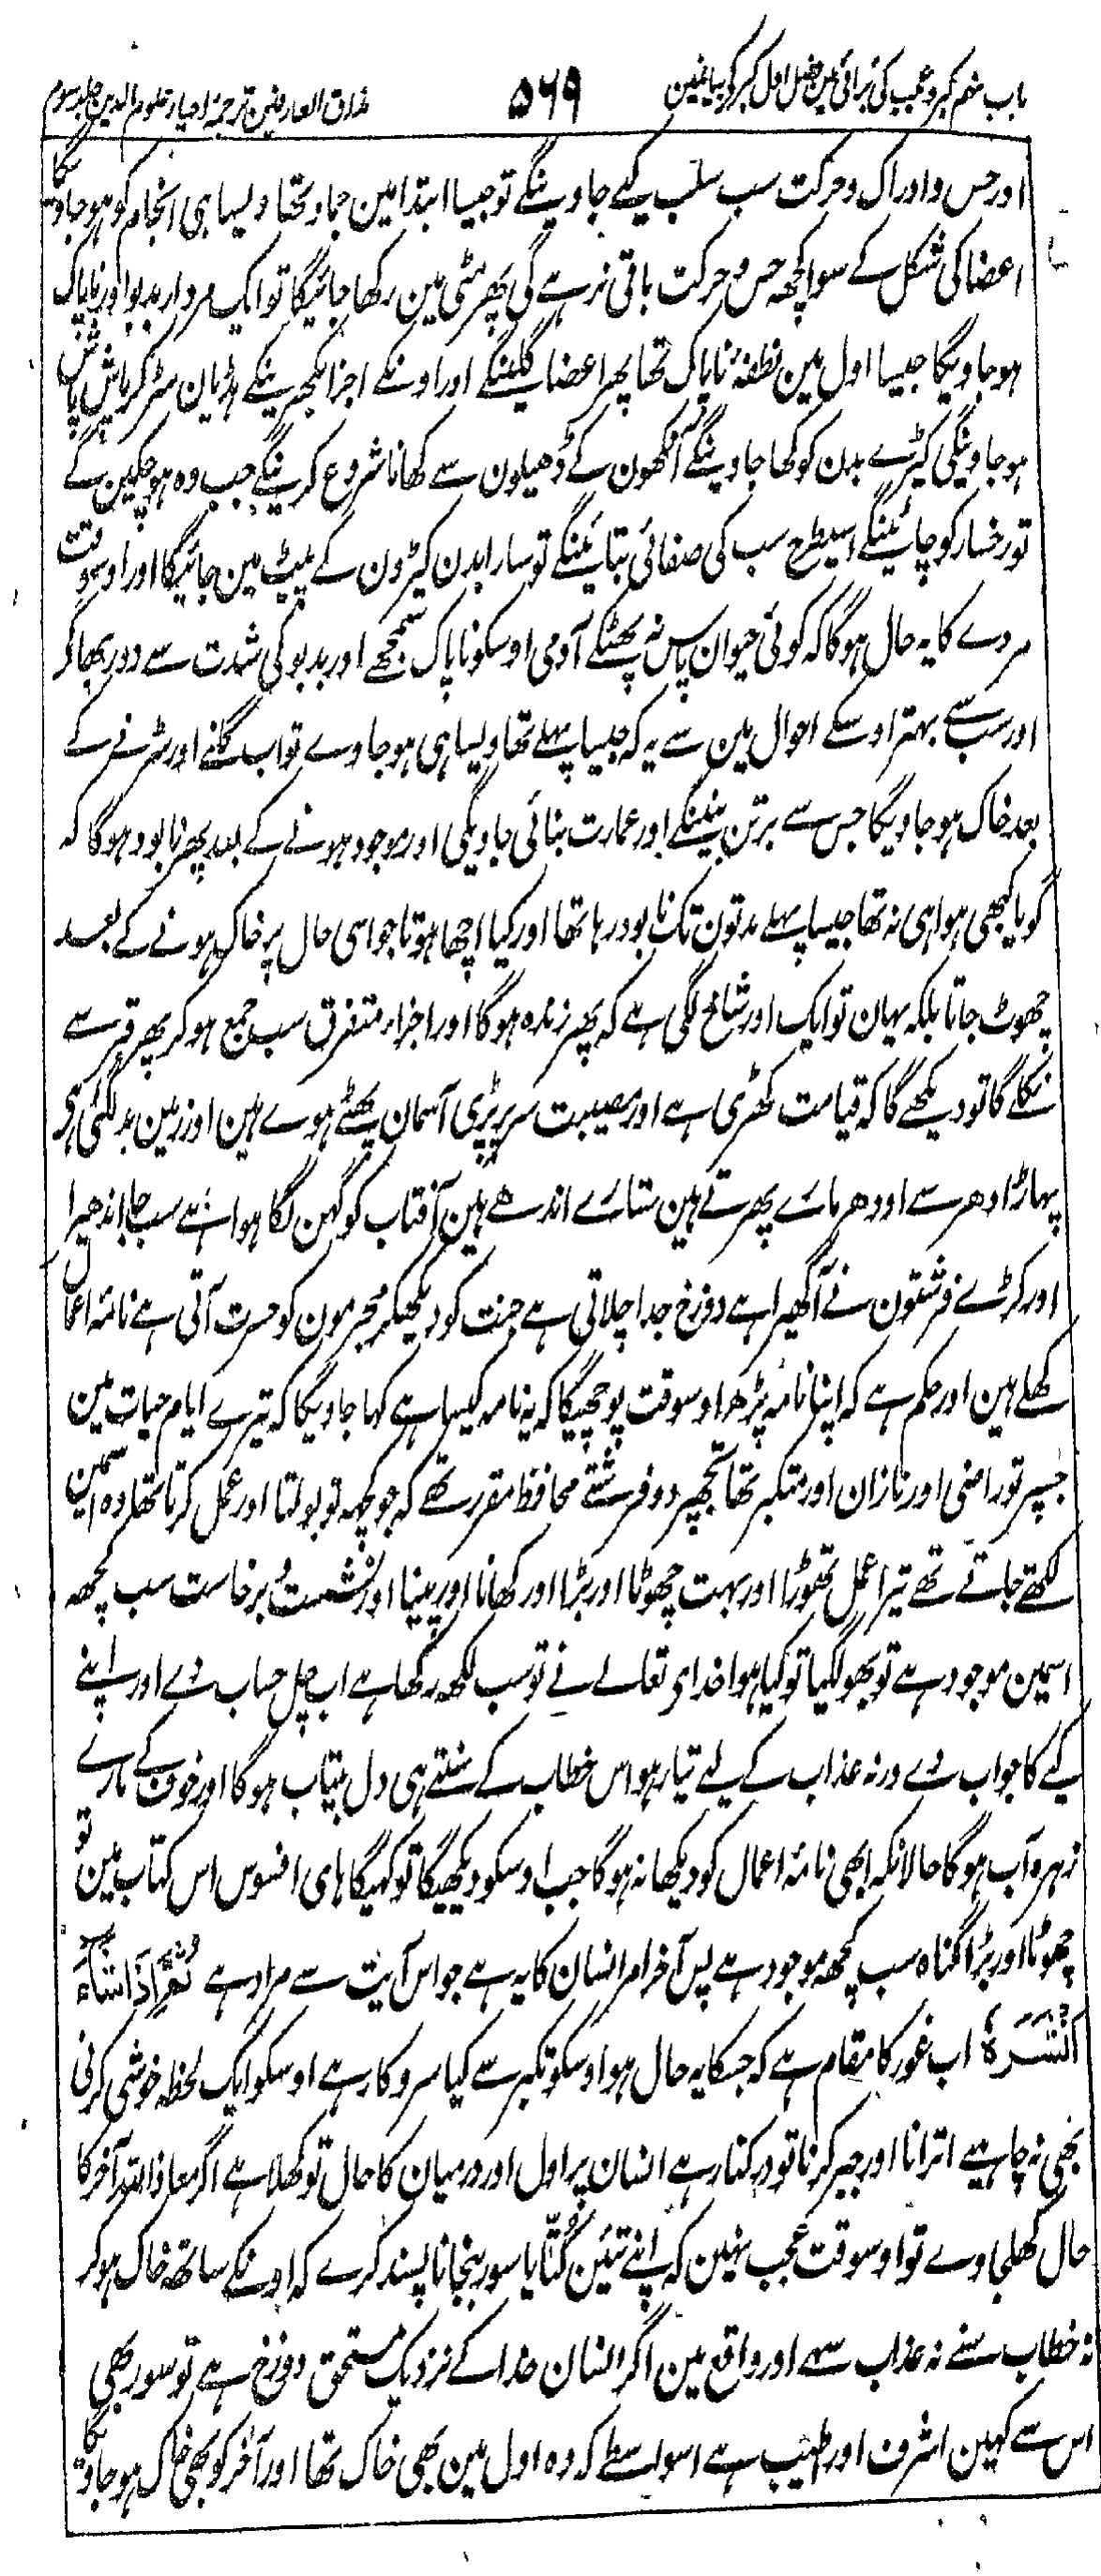 باب نہم کبر و عجب کی برائی مین فصل اول کبر کے بیانمین
۵۶۹
مذاق العارفین ترجمۂ احیاء علوم الدین جلد سوم
اور حس و ادراک و حرکت سب سلب کیے جاوینگے تو جیسا ابتدا مین جماد تھا ویسا ہی انجام کو ہو جاویگا
اعضا کی شکل کے سوا کچھ حس و حرکت باقی نرہے گی پھر مٹی مین رکھا جائیگا تو ایک مردار بدبو اور ناپاک
ہو جاویگا جیسا اول مین نطفۂ ناپاک تھا پھر اعضا گلینگے اور اونکے اجزا بکھرینگے ہڈیان سڑکر پاش پاش
ہو جاوینگی کیڑے بدن کو کھا جاوینگے آنکھون کے ڈھیلون سے کھانا شروع کرینگے جب وہ ہو چکین گے
تو رخسار کو چاٹینگے اسیطرح سب کی صفائی بتائینگے تو سارا بدن کیڑون کے پیٹ مین جائیگا اور اوسوقت
مردے کا یہ حال ہوگا کہ کوئی حیوان پاس نہ پھٹکے آدمی اوسکو ناپاک سمجھے اور بدبو کی شدت سے دور بھاگے
اور سب سے بہتر اوسکے احوال مین سے یہ کہ جیسا پہلے تھا ویسا ہی ہو جاوے تو اب گلنے اور سڑنے کے
بعد خاک ہو جاویگا جس سے برتن بنینگے اور عمارت بنائی جاویگی اور موجود ہونے کے بعد پھر نابود ہوگا کہ
گویا کبھی ہوا ہی نہ تھا جیسا پہلے مدتون تک نابود رہا تھا اور کیا اچھا ہوتا جو اسی حال پر خاک ہونے کے بعد
چھوٹ جاتا بلکہ یہان تو ایک اور شاخ لگی ہے کہ پھر زندہ ہوگا اور اجزاء متفرق سب جمع ہوکر پھر قبر سے
نکلے گا تو دیکھے گا کہ قیامت کھڑی ہے اور مصیبت سر پر پڑی آسمان پھٹے ہوے ہین اور زمین بدل گئی ہے
پہاڑ ادھر سے اودھر مارے پھرتے ہین ستارے اندھے ہین آفتاب کو گہن لگا ہوا ہے سب جا اندھیرا
اور کڑے فرشتون نے آگھیرا ہے دوزخ جدا چلاتی ہے جنت کو دیکھکر مجرمون کو حسرت آتی ہے نامۂ اعمال
کھلے ہین اور حکم ہے کہ اپنا نامہ پڑھ اوسوقت پوچھیگا کہ یہ نامہ کیسا ہے کہا جاویگا کہ تیرے ایام حیات مین
جسپر تو راضی اور نازان اور متکبر تھا تجھپر دو فرشتے محافظ مقرر تھے کہ جو کچھ تو بولتا اور عمل کرتا تھا وہ اسمین
لکھتے جاتے تھے تیرا عمل تھوڑا اور بہت چھوٹا اور بڑا اور کھانا اور پینا اور نشست و برخاست سب کچھ
اسمین موجود ہے تو بھول گیا تو کیا ہوا خدای تعالے نے تو سب لکھ رکھا ہے اب چل حساب دے اور اپنے
کیے کا جواب دے ورنہ عذاب کے لیے تیار ہو اس خطاب کے سنتے ہی دل بیتاب ہوگا اور خوف کے مارے
زہرہ آب ہوگا حالانکہ ابھی نامۂ اعمال کو دیکھا نہ ہوگا جب اوسکو دیکھیگا تو کہیگا ہای افسوس اس کتاب مین تو
چھوٹا اور بڑا گناہ سب کچھ موجود ہے پس آخر امر انسان کا یہ ہے جو اس آیت سے مراد ہے ثُمَّ اِذَا شَآءَ
اَنْشَرَهٗ اب غور کا مقام ہے کہ جسکا یہ حال ہو اوسکو تکبر سے کیا سروکار ہے اوسکو ایک لحظہ خوشی کرنی
بھی نہ چاہیے اترانا اور جبر کرنا تو درکنار ہے انسان پر اول اور درمیان کا حال تو کھلا ہے اگر معاذ اللہ آخر کا
حال کھلجاوے تو اوسوقت عجب نہین کہ اپنے تئین کُتّا یا سور بنجانا پسند کرے کہ اونکے ساتھ خاک ہوکر
نہ خطاب سنے نہ عذاب سہے اور واقع مین اگر انسان خدا کے نزدیک مستحق دوزخ ہے تو سور بھی
اس سے کہین اشرف اور طیب ہے اسواسطے کہ وہ اول مین بھی خاک تھا اور آخر کو بھی خاک ہو جاویگا